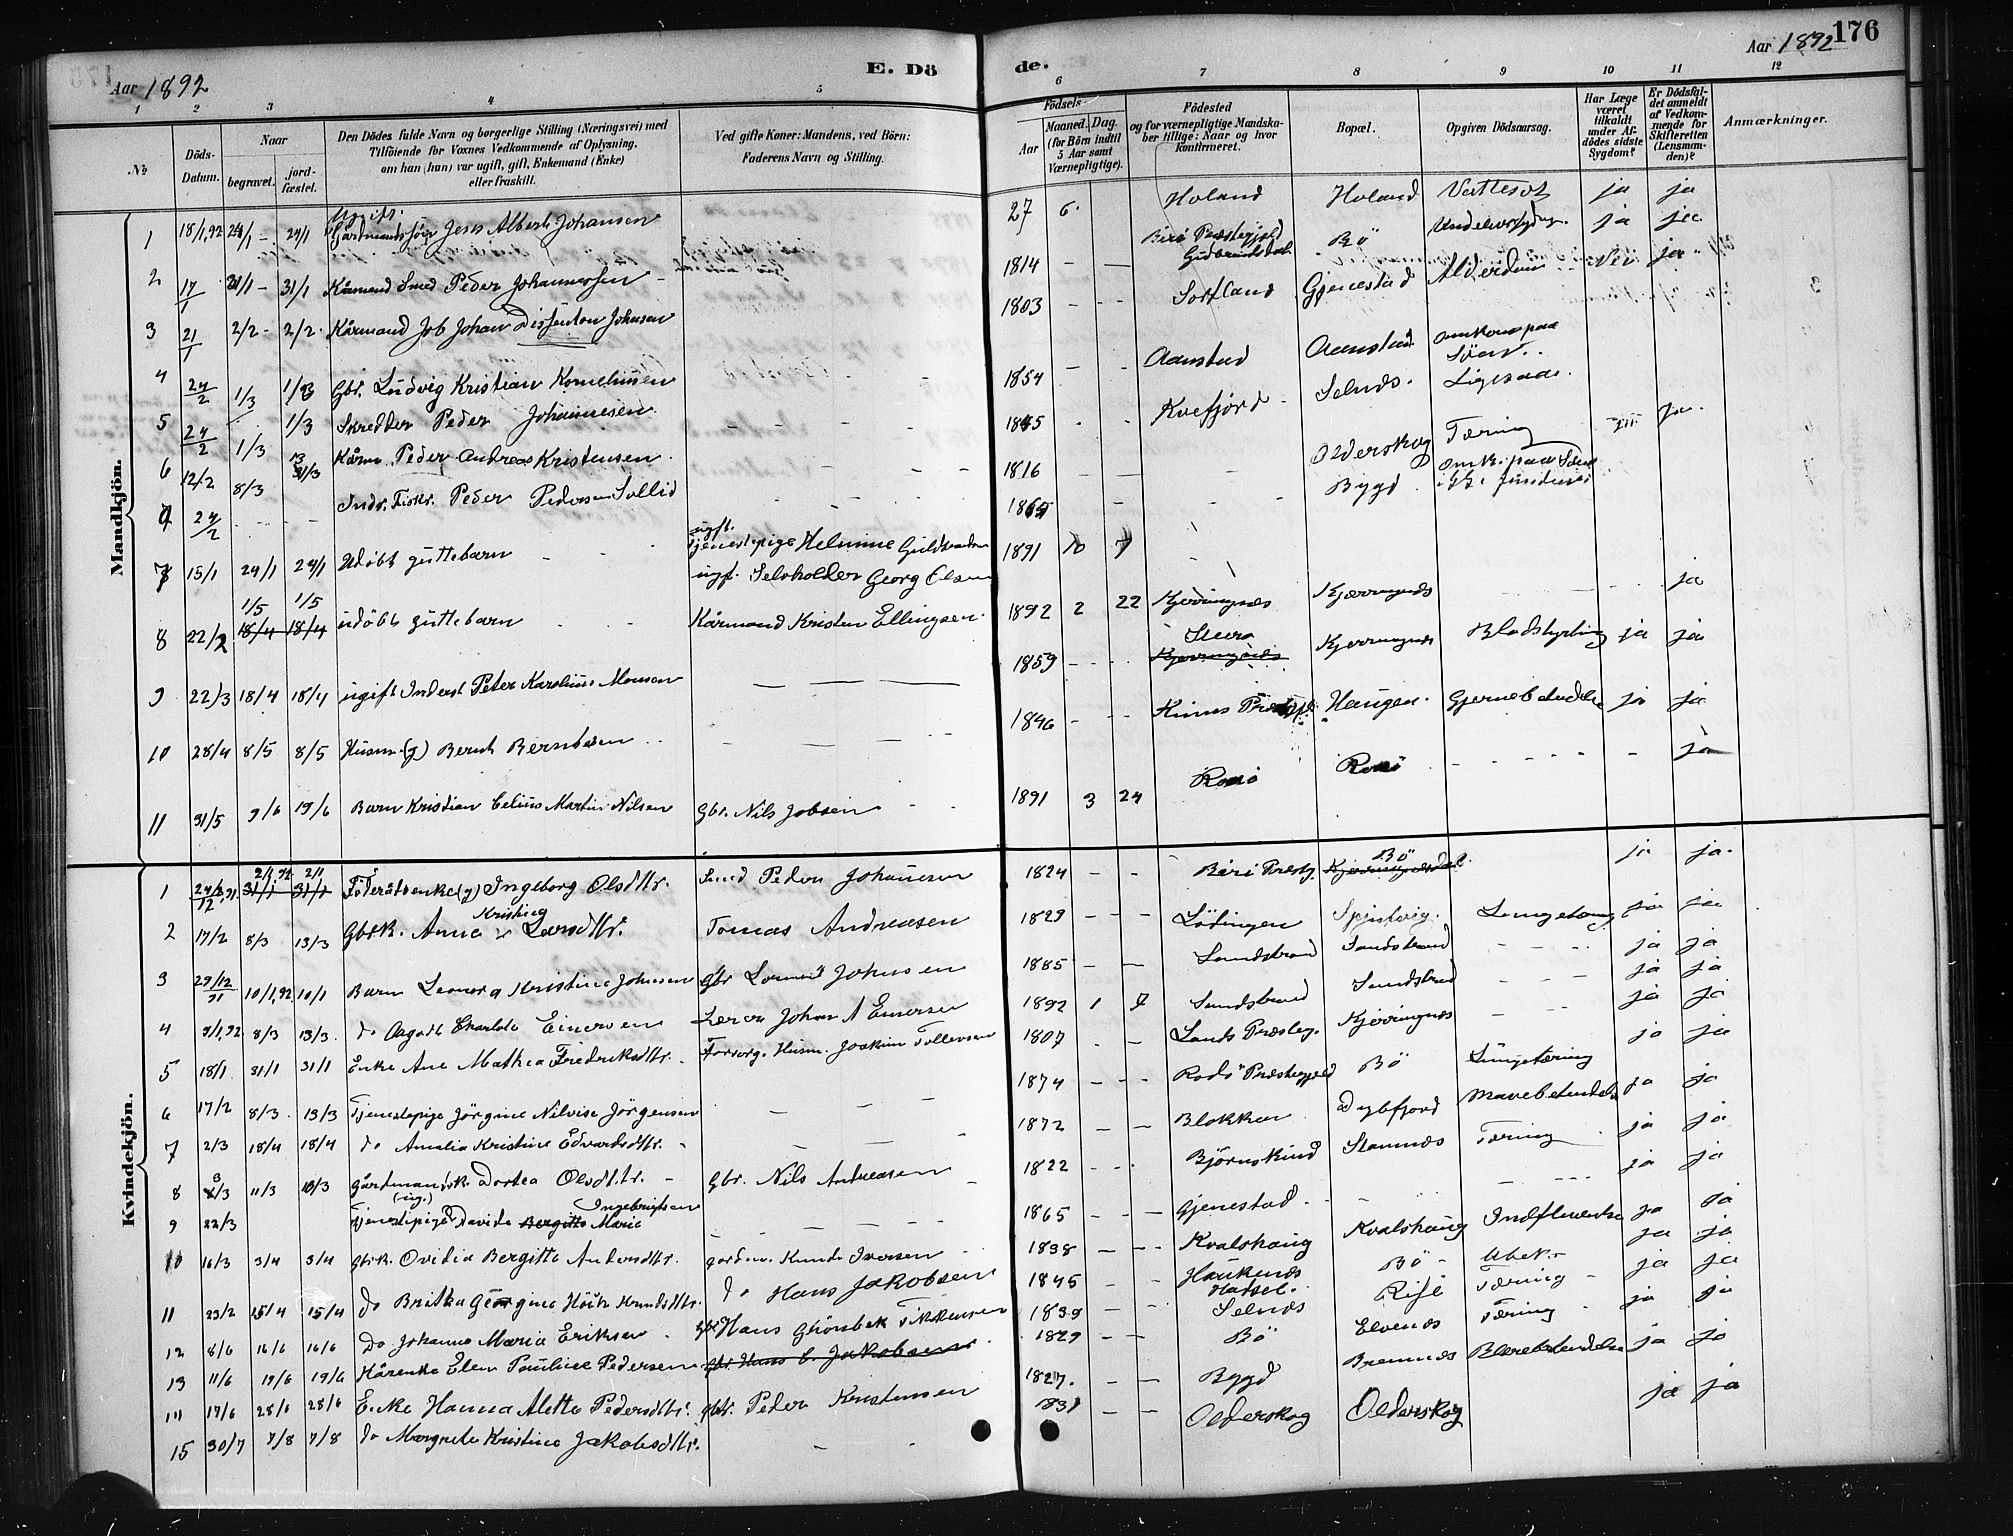 176
Aar 1892
E. Dö
de.
Aar 1892
1 2 3 4 5 6 7 8 9 10 11 12
No
Döds-Datum.
Naar
begravet.
jord-fæstet.
Den Dödes fulde Navn og borgerlige Stilling (Næringsvei) med
Tilföiende for Voxnes Vedkommende af Oplysning,
om han (hun) var ugift, gift, Enkemand (Enke)
eller fraskilt.
Ved gifte Koner: Mandens, ved Börn:
Faderens Navn og Stilling.
Födsels-
Aar
Maaned. Dag.
(for Börn indtil
5 Aar samt
Værnepligtige).
Födested
og for værnepligtige Mandska-
ber tillige: Naar og hvor
konfirmeret.
Bopæl.
Opgiven Dödsaarsag.
Har Læge
været
tilkaldt
under Af-
dödes sidste
Sygdom?
Er Dödsfal-
det anmeldt
af Vedkom-
mende for
Skifteretten
(Lensman-
den)?
Anmærkninger.
Mandkjön.
1 18/1,92 24/1 - 24/1 Ugift. Gårdmandssön Jens Albert Johansen 27 6. Holand Holand Vattesot ja ja
2 17/1 31/1 - 31/1 Kårmand Smed Peder Johannessen 1814 - - Biri Præstegjeld Gudbrandsdal Bö ja ja
3 21/1 2/2 - 2/2 Kårmand Job Johan Johnsen 1803 - - Sortland Gjenestad Alderdom Nei ja
4 24/2 1/3 1/3 Gbr. Ludvig Kristian Kornelius­sen 1854 - - Aanstad Aanstad omkom paa Söen
5 24/2 1/3 1/3 Skredder Peder Johannesen 1845 Kvefjord Selnæs. Ligesaa
6 12/2 8/3 13/3 Kårm. Peder Andreas Kristensen 1816 - - Olderskog Tæring ja
24/2 - - Inds. Fisker Peder Pedersen Sollid - - Bygd omk. paa Söen
7 15/1 24/1 24/1 Udöbt guttebarn ugft. Tjenestepige Helmine ugf. Selvholder Georg Olsen 1891 10 7
8 22/2 1/5 1/5 18/4 18/4 udöbt guttebarn Kårmand Kristen Ellingsen 1892 2 22 Kjerringnæs Kjærringnæs ja
9 22/3 18/4 18/4 ugift Inderst Peter Karolius Monsen 1859 - - Kjerringnæs Kjerringnæs Blodstyrtning ja ja
10 28/4 8/5 8/5 Husm. (g) Bernt Berntsen 1846 - - Haugen. Gjernebetendelse ja ja
11 31/5 9/6 19/6 Barn Kristian Celius Martin Nilsen Gbr. Nils Jobsen 1891 3 24 - ja
Kvindekjön.
1 31/1 31/1 2/1 Föderådsenke (g) Ingeborg Olsdtr. Smed Peder Johannesen 1824 - - Biri Præstg. Bö ja ja
2 17/2 8/3 13/3 Gbrk. Anna Kristine Larsdtr. Tomas Andreasen 1829 - - Lödingen ja ja
3 29/12 91 10/1,92 10/1 Barn Leonora Kristine Johnsen Gbr. Johnsen 1885 - - Sandstrand Sandstrand ja ja
4 9/1,92 8/3 13/3 do Charlotte Einersen Lærer Johan A Einersen 1892 1 7 Sandstrand Sandstrand ja ja
5 18/1 31/1 31/1 Enke Ane Mathea Frederiksdtr. Forsorg. Husm. Joakim Tollevsen 1807 - - Lands Præsteg. Kjerringnæs ja ja
6 17/2 8/3 13/3 Tjenestepige Jörgine Nilvise Jörgensen 1874 - - Rodö Præstegjeld Bö Lungetæring ja ja
7 2/3 18/4 18/4 do Amalia Kristine Edvardsdtr. 1872 - - Blokken Dybfjord Mavebetendelse ja ja
8 8/3 11/3 13/3 Gårdmandsk. Dortea Olsdtr. Gbr. Nils Andreasen 1822 - - Björnskind Stamnes Tæring ja ja
9 22/3 (ug.) Tjenestepige Davida Bergitte Marie Ingebrigtsen 1865 - - Gjenestad ja ja
10 16/3 3/4 3/4 Gbrk. Ovidia Bergitte Andersdtr. gårdm. Knud Iversen 1838 - - Kvalshaug Kvalshaug Indflu­entse ja ja
11 23/2 15/4 15/4 do Britha Georgine Knudsdtr. do Hans Jakobsen 1845 - - Haukenæs Hatsel. Bö Ubek. ja ja
12 8/6 16/6 16/6 do Johanna Maria Eriksen Gbr. Hans Grönbek 1839 - - Selnæs Rise Tæring ja ja
13 11/6 19/6 19/6 Kårenke Elen Pauline Pedersen Gbr. Hans C. Jakobsen 1829 - - Bö Elvenæs Tæring ja ja
14 17/6 28/6 28/6 Enke Hanna Aletta Pedersdtr. gbr. Peder Kristensen 1827. - - Bygd Bremnæs Blærebetendelse ja ja
15 30/7 7/8 7/8 do Margrete Kristine Jakobsdtr. 1831 - - Olderskog Olderskog ja ja